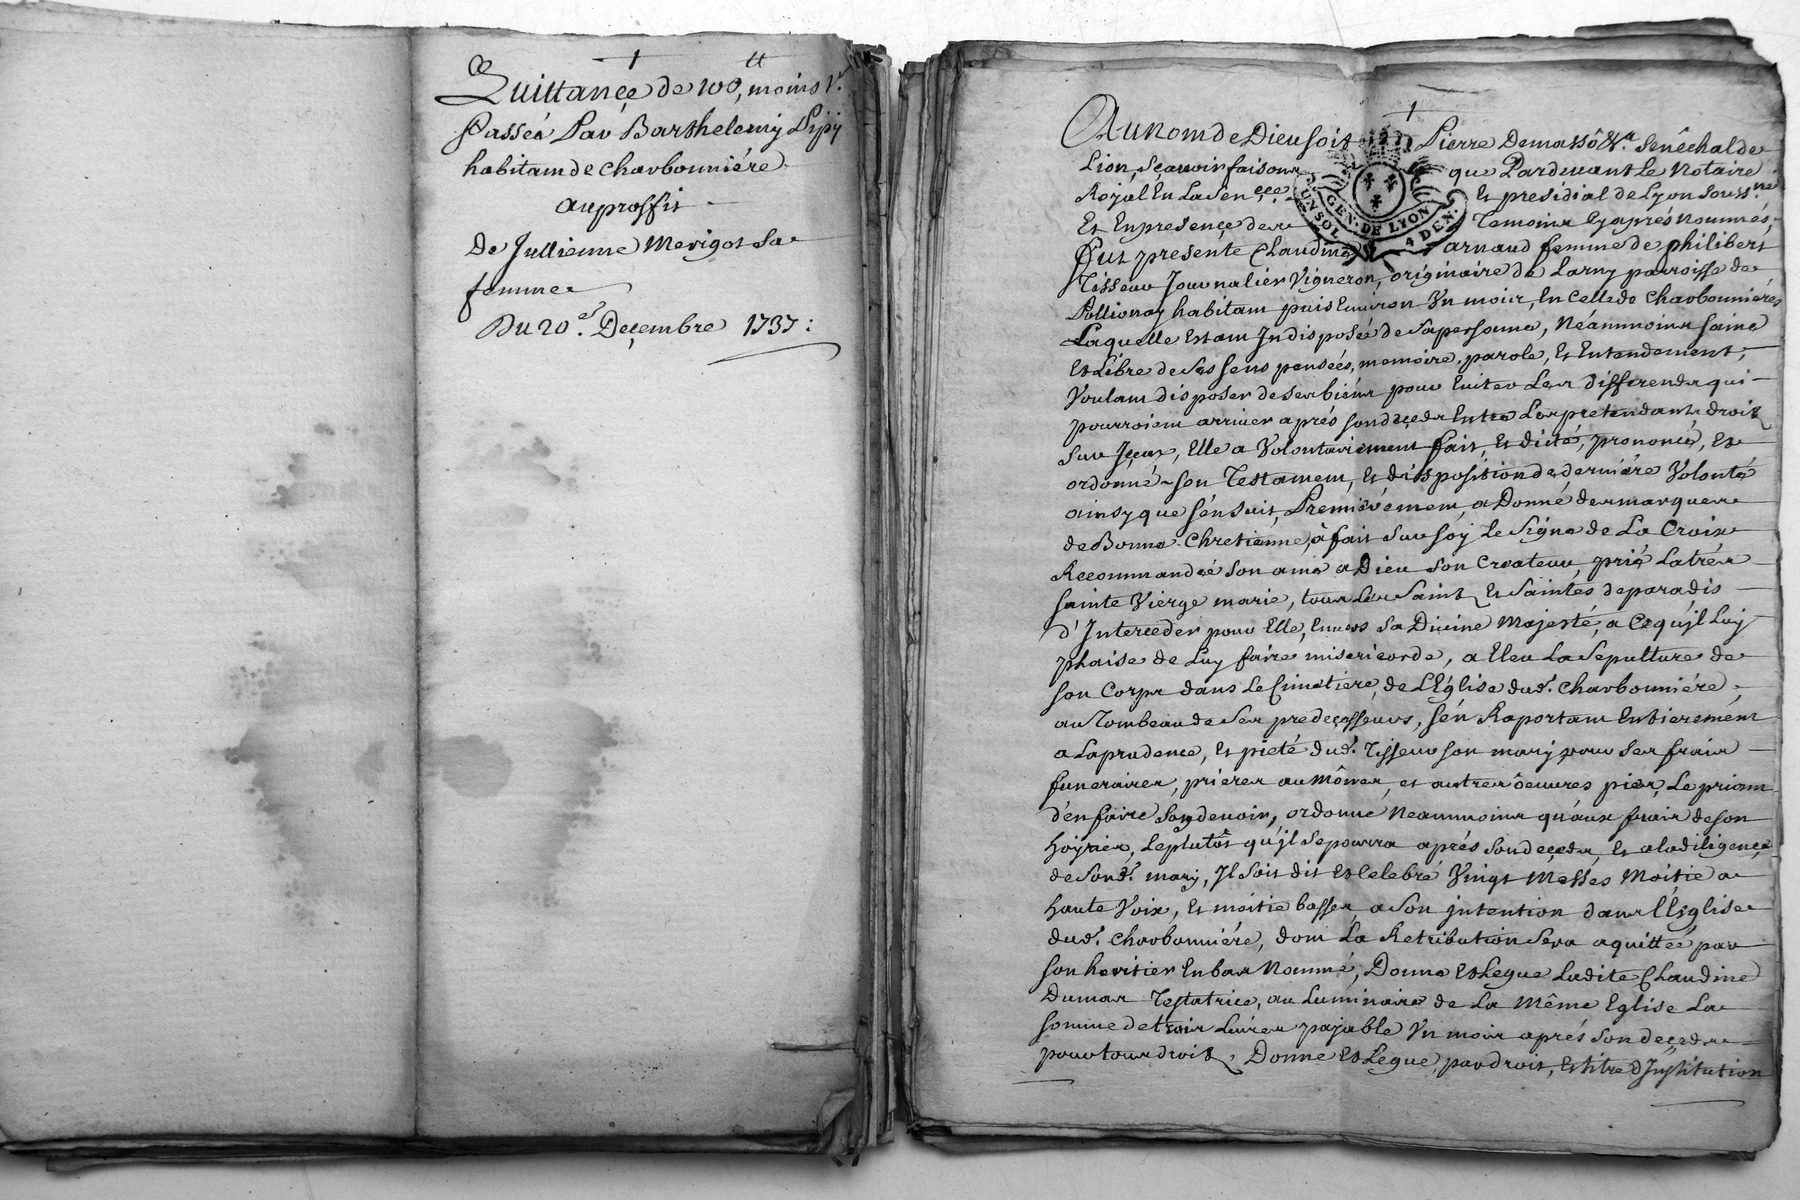 Quittançe de 100ₗₜ, moins 1.
Passéé Par Barthelemy Pipy
habitant de charbonniére
au proffit
De Jullienne Merigot Sa
femme
Du 20.e Deçembre 1737:
Au nom de Dieu soit Pierre Demassô &.r Senêchal de
Lion, Sçavoir faisons que Pardevant Le Notaire
Royal En La Sen.ççe Et presidial de Lyon Souss.né
Et En presençe des Temoins Cy aprés Nommés,
GEN. DE LYON
UN SOL 4 DEN.
Fut presente Claudine arnaud femme de philibert
Tisseur Journalier Vigneron, originaire de Larny parroisse de
Pollionay habitant puis Environ Un mois, En Celle de Charbonniéres
Laquelle Estant Indisposéé de Sa personne, Néanmoins Saine
Et Libre de Ses Sens penséés, memoire, parole, Et Entendement,
Voulant disposer de Ses biéns pour Eviter Les differends qui
pourroient arriver aprés son deçeds Entre Les pretendants droits
Sur Jçeux, Elle a Volontairement fait, Et dicté, prononcé, Et
ordonné son Testament, Et disposition de derniére Volonté
ainsy que s'én Suit, Premiérement, a Donné des marques
de Bonne Chretienne, à fait Sur Soy Le Signe de La Croix
Recommandéé Son ame a Dieu Son Createur, prié La trés
Sainte Vierge marie, tous Les Saints Et Saintes de paradis
d'Interceder pour Elle, Envers Sa Divine Majesté, a Ce qu'jl Luy
plaise de Luy faire misericorde, a Eleu La Sepulture de
son Corps dans Le Cimetiére, de L'Eglise dud.t Charbonniére,
au Tombeau de Ses predeçesseurs, s'én Raportant Entierement
a La prudence, Et pieté dud.t Tisseur son mary pour Ses frais
funeraires, prieres aumônes, et autres ôeuvres pies, Le priant
d'en faire Son devoir, ordonne Neanmoins qu'aux frais de Son
hoirie, Le plutôt qu'jl Se pourra aprés Son deçeds, Et a La diligençe
de Sond.t mary, Il Soit dit Et Celebré Vingt Messes Moitie a
haute Voix, Et moitie basses, a Son jntention dans L'Église
dud.t Charbonniére, dont La Retribution Sera aquittéé par
Son heritier En bas Nommé, Donne Et Legue Ladite Claudine
Dumas Testatrice, au Luminaire de La Même Eglise La
Somme de trois Livres payable Un mois aprés Son deçeds
pour tous droits, Donne Et Legue, par droit, Et titre d'Institution